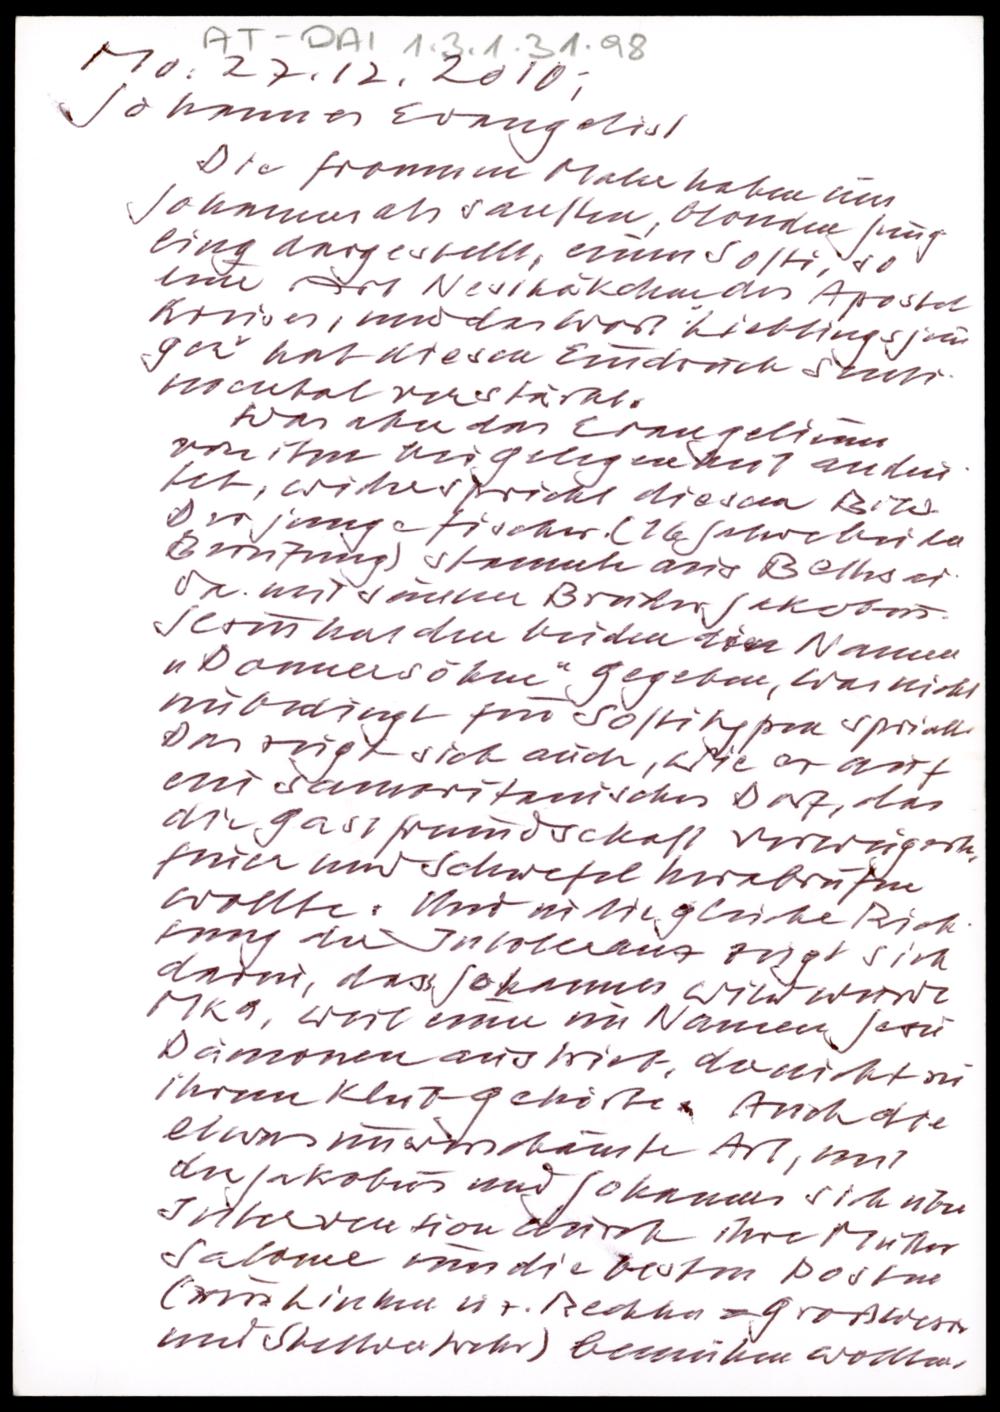 AT-DAI 1.3.1.31.98
Mo. 27.12.2010,
Johannes Evangelist
Die frommen Maler haben uns
Johannes als sanften, blonden Jüng
ling dargestellt, einen Softi, so
eine Art Nesthäkchen des Apostel
kreises, und das Wort "Lieblingsjün
ger" hat diesen Eindruck
nochmal verstärkt.
Was aber das Evangelium
von ihm bei Gelegenheit andeu
tet, widerspricht diesem Bild.
Der junge Fischer (16 Jahre bei der
Berufung) stammte aus Bethsai
da mit seinem Bruder Jakobus.
Jesus hat den beiden den Namen
"Donnersöhne" gegeben, was nicht
unbedingt für Softitypen spricht.
Das zeigt sich auch, wie er auf
ein samaritanisches Dorf, das
die Gastfreundschaft verweigerte,
Feuer und Schwefel herabrufen
wollte. Und in die gleiche Rich
tung der Intoleranz zeigt sich
darin, dass Johannes wild wurde
Mk 9, weil einer im Namen Jesu
Dämonen austrieb, der nicht zu
ihrem Klub gehörte. Auch die
etwas unverschämte Art, mit
der Jakobus und Johannes sich über
Intervention durch ihre Mutter
Salome um die besten Posten
(zur Linken u. z. Rechten = Großwesir
und Stellvertreter) bemühen wollten,